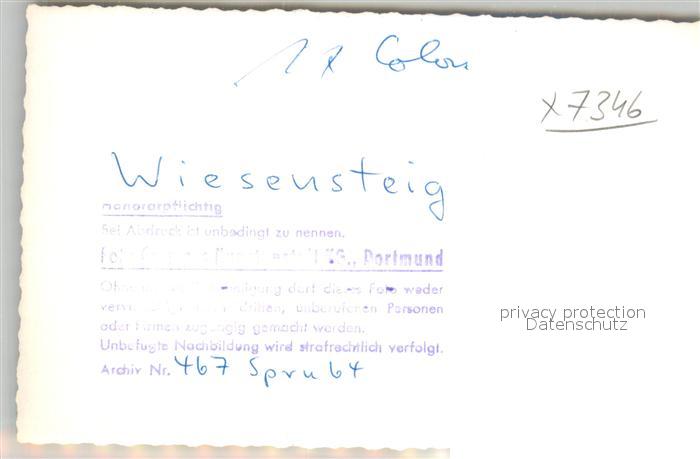 1 x Color
x7346
Wiesensteig
honorarpflichtig
Bei Abdruck ist unbedingt zu nennen.
KG., Dortmund
darf dieses Foto weder
dritten, unberufenen Personen
oder Firmen zugängig gemacht werden.
Unbefugte Nachbildung wird strafrechtlich verfolgt.
Archiv Nr. 467 Spru 64
privacy protection
Datenschutz